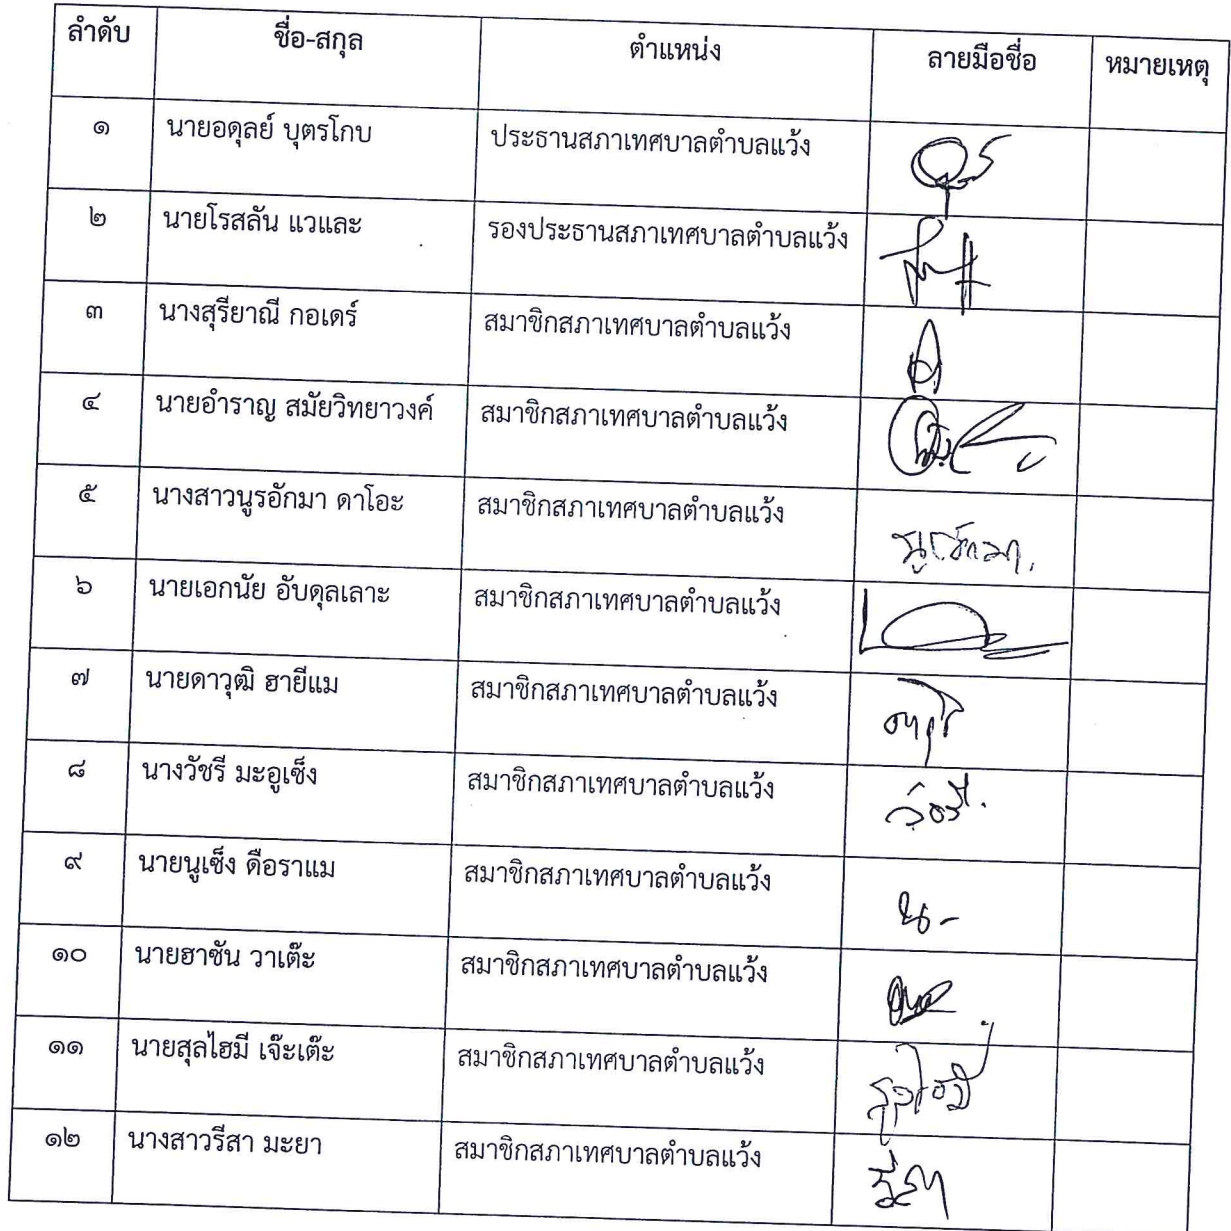 ลำดับ ชื่อ-สกุล ตำแหน่ง ลายมือชื่อ หมายเหตุ
๑ นายอดุลย์ บุตรโกบ ประธานสภาเทศบาลตำบลแว้ง
๒ นายโรสลัน แวและ รองประธานสภาเทศบาลตำบลแว้ง
๓ นางสุรียาณี กอเดร์ สมาชิกสภาเทศบาลตำบลแว้ง
๔ นายอำราญ สมัยวิทยาวงค์ สมาชิกสภาเทศบาลตำบลแว้ง
๕ นางสาวนูรอักมา ดาโอะ สมาชิกสภาเทศบาลตำบลแว้ง นูรอักมา
๖ นายเอกนัย อับดุลเลาะ สมาชิกสภาเทศบาลตำบลแว้ง
๗ นายดาวุฒิ ฮายีแม สมาชิกสภาเทศบาลตำบลแว้ง
๘ นางวัชรี มะอูเซ็ง สมาชิกสภาเทศบาลตำบลแว้ง
๙ นายนูเซ็ง ดือราแม สมาชิกสภาเทศบาลตำบลแว้ง
๑๐ นายฮาซัน วาเต๊ะ สมาชิกสภาเทศบาลตำบลแว้ง
๑๑ นายสุลไฮมี เจ๊ะเต๊ะ สมาชิกสภาเทศบาลตำบลแว้ง
๑๒ นางสาวรีสา มะยา สมาชิกสภาเทศบาลตำบลแว้ง